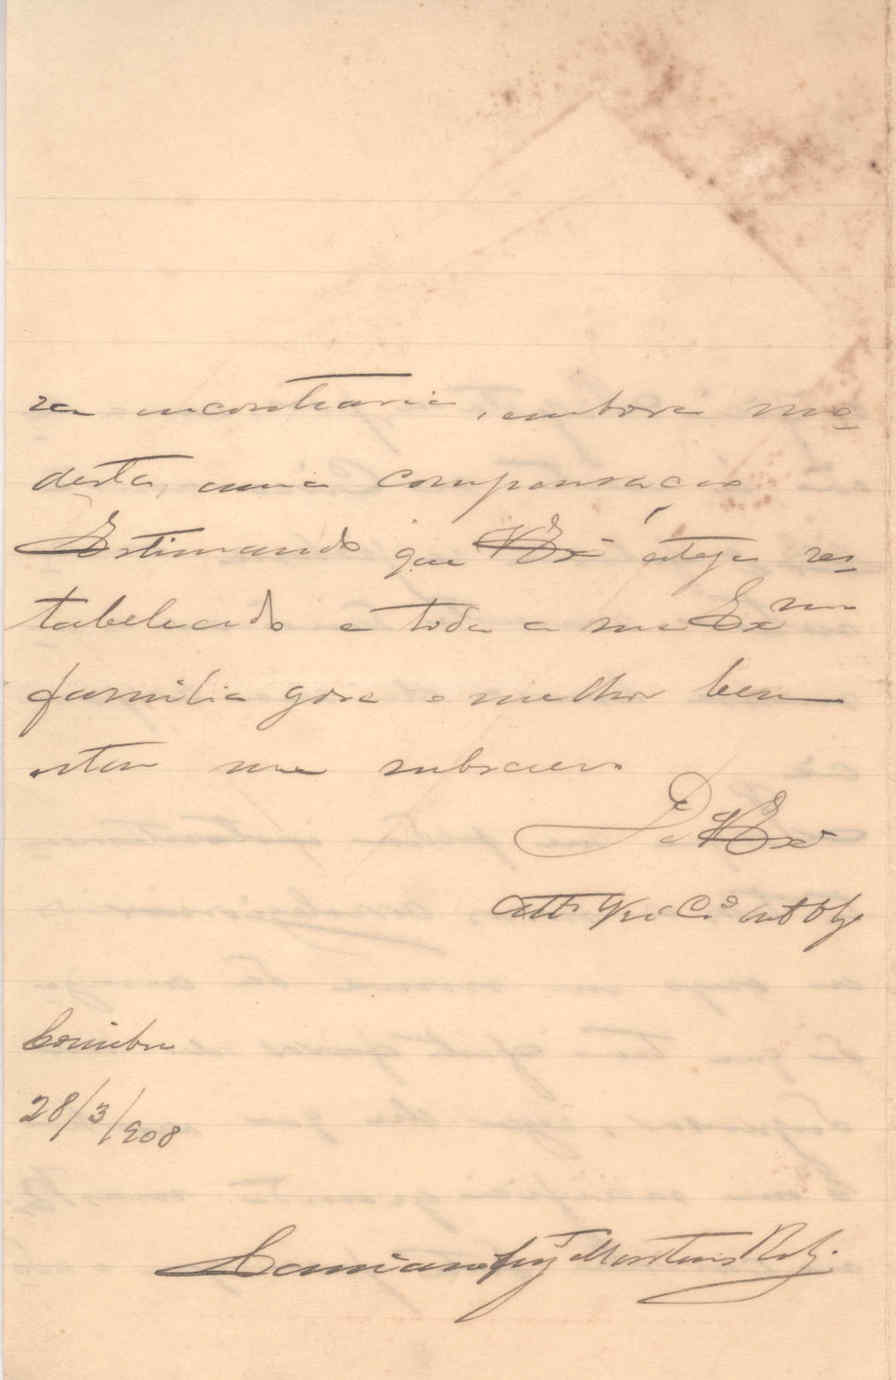 ra encontraria, embora mo=
desta, uma compensação
Estimando que VExª esteja res=
tabelecido e toda a sua Exma
familia gose o melhor bem
estar me subscrevo
De VExª
Attº Vor Cº obº
Coimbra
28/3/908
Damiano Martins